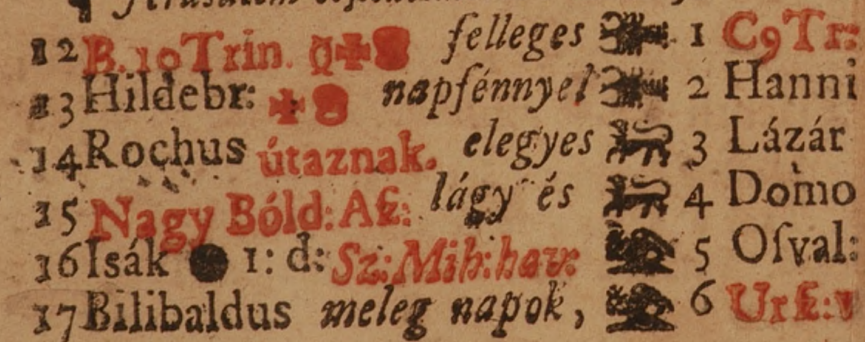 12 B. 10 Trin. felleges 1 C 9 Tr:
13 Hildebr: napfénnyel 2 Hanni
14 Rochus útaznak. elegyes 3 Lázár
15 Nagy Bóld: Aſſ: lágy és 4 Domo
16 Isák 1: d: Sz: Mih: hav: 5 Oſval:
17 Bilibaldus meleg napok, 6